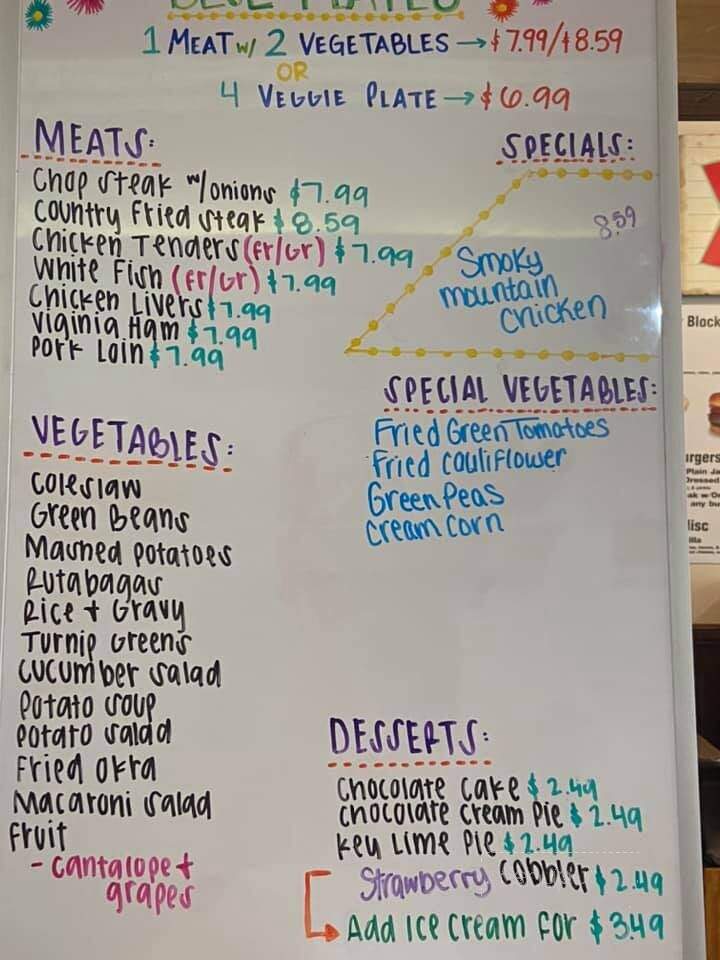 BLUE PLATES
1 MEAT w/ 2 VEGETABLES → $7.99/$8.59
OR
4 VEGGIE PLATE → $6.99
MEATS:
Chop steak w/onions $7.99
Country Fried steak $8.59
Chicken Tenders (Fr/Gr) $7.99
White Fish (Fr/Gr) $7.99
Chicken Livers $7.99
Viginia Ham $7.99
Pork Loin $7.99
SPECIALS:
8.59
Smoky
mountain
chicken
SPECIAL VEGETABLES:
Fried Green Tomatoes
Fried cauliflower
Green Peas
cream corn
VEGETABLES:
Coleslaw
Green Beans
Mashed potatoes
Rutabagas
Rice + Gravy
Turnip Greens
Cucumber salad
Potato soup
Potato salad
Fried okra
Macaroni salad
Fruit
- cantalope +
grapes
DESSERTS:
Chocolate Cake $2.49
Chocolate cream Pie $2.49
Key Lime Pie $2.49
Strawberry Cobbler $2.49
Add Ice cream for $3.49
Block
urgers
Plain
Dressed
any
isc
illa